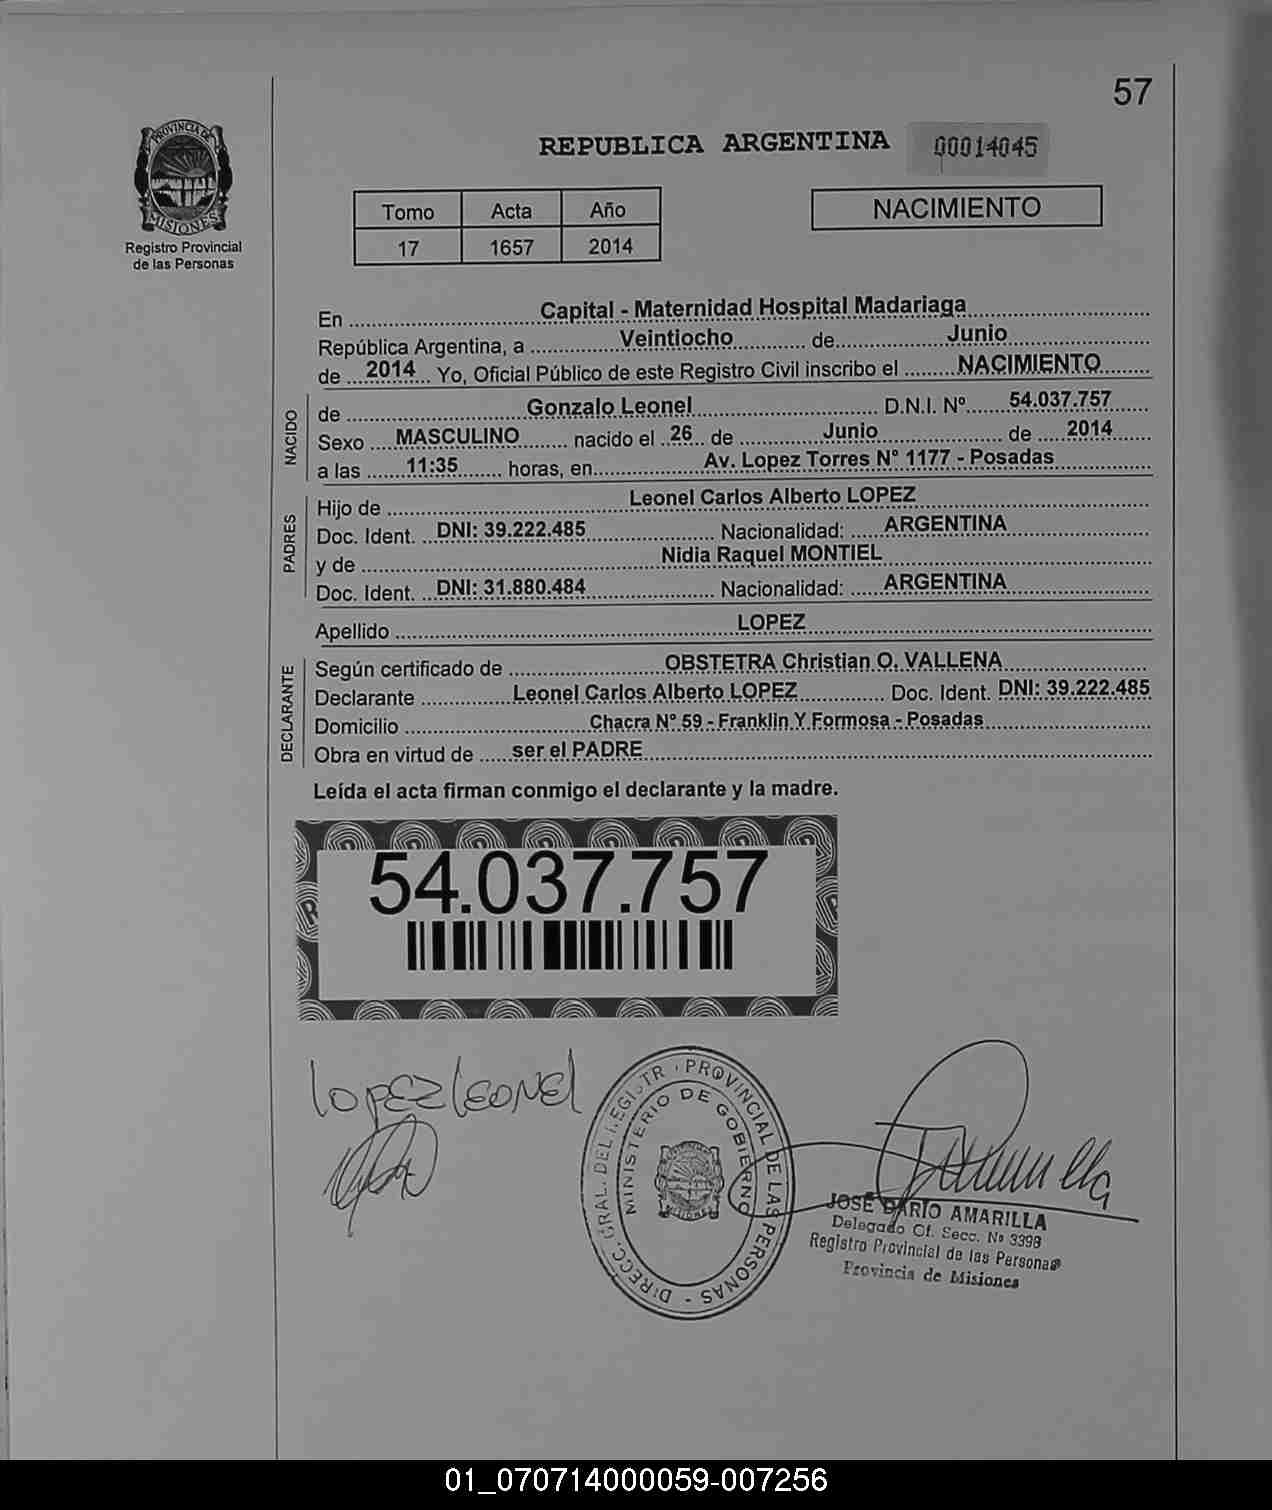 57
PROVINCIA DE
MISIONES
Registro Provincial
de las Personas
REPUBLICA ARGENTINA
00014045
Tomo Acta Año
17 1657 2014
NACIMIENTO
En Capital - Maternidad Hospital Madariaga
República Argentina, a Veintiocho de Junio
de 2014 Yo, Oficial Público de este Registro Civil inscribo el NACIMIENTO
NACIDO
de Gonzalo Leonel D.N.I. Nº 54.037.757
Sexo MASCULINO nacido el 26 de Junio de 2014
a las 11:35 horas, en Av. Lopez Torres N° 1177 - Posadas
PADRES
Hijo de Leonel Carlos Alberto LOPEZ
Doc. Ident. DNI: 39.222.485 Nacionalidad: ARGENTINA
y de Nidia Raquel MONTIEL
Doc. Ident. DNI: 31.880.484 Nacionalidad: ARGENTINA
Apellido LOPEZ
DECLARANTE
Según certificado de OBSTETRA Christian O. VALLENA
Declarante Leonel Carlos Alberto LOPEZ Doc. Ident. DNI: 39.222.485
Domicilio Chacra N° 59 - Franklin Y Formosa - Posadas
Obra en virtud de ser el PADRE
Leída el acta firman conmigo el declarante y la madre.
54.037.757
Lopez Leonel
DIRECC. GRAL. DEL REGISTR PROVINCIAL DE LAS PERSONAS -
MINISTERIO DE GOBIERNO
MISIONES
JOSÉ DARIO AMARILLA
Delegado Of. Secc. Nº 3398
Registro Provincial de las Personas
Provincia de Misiones
01_070714000059-007256